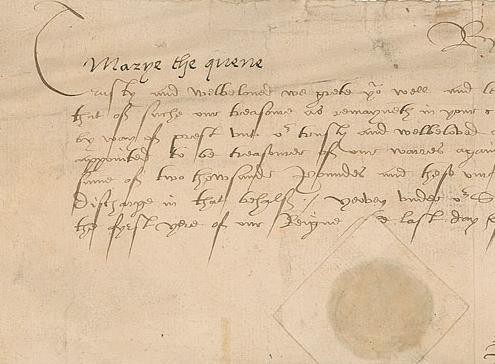 Marye the quene
Trusty and welbeloved we grete you well and
that of suche our treasoure as remayneth in your
by way of prest unto our trusty and welbeloved
appointed to be treasourer of our warres again
summe of two thowsande Poundes and these
discharge in that behalf : / yeoven under our
the fyrst yere of our Reigne last day